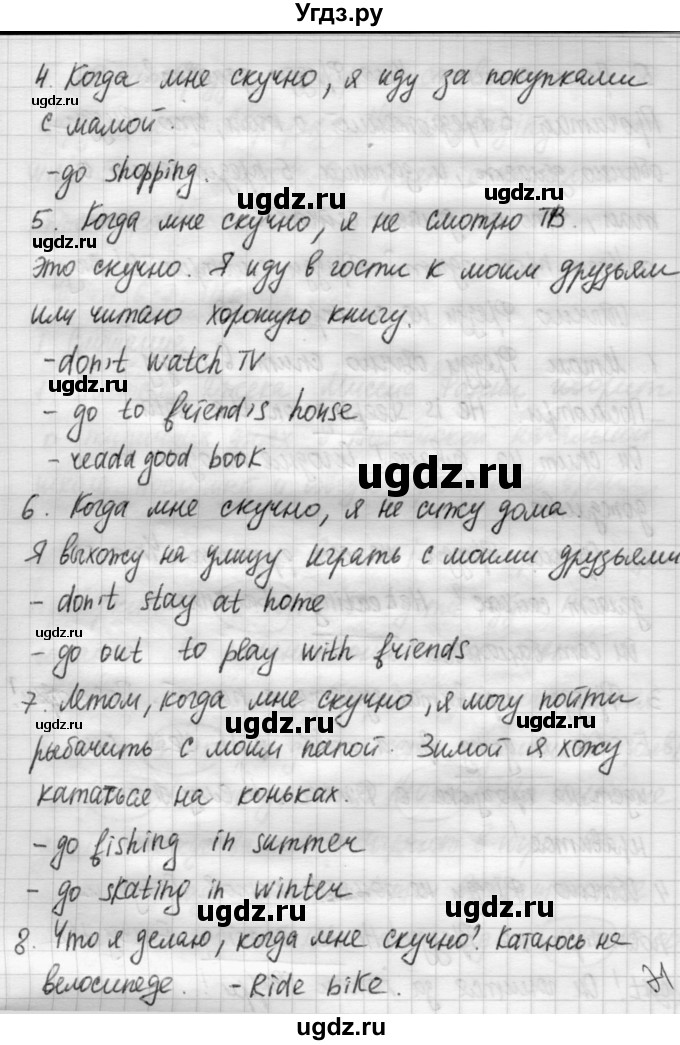 Угдз.ру
4. Когда мне скучно, я иду за покупками
ugdz.ru
с мамой.
- go shopping.
ugdz.ru
ugdz.ru
5. Когда мне скучно, я не смотрю ТВ.
ugdz.ru
Это скучно. Я иду в гости к моим друзьям
или читаю хорошую книгу.
- don't watch TV
ugdz.ru
- go to friend's house
- read a good book
ugdz.ru
6. Когда мне скучно, я не сижу дома.
Я выхожу на улицу играть с моими друзьями
- don't stay at home
ugdz.ru
- go out to play with friends
7. Летом, когда мне скучно, я могу пойти
ugdz.ru
ugdz.ru
ugdz.ru
рыбачить с моим папой. Зимой я хожу
кататься на коньках.
- go fishing in summer
- go skating in winter
ugdz.ru
ugdz.ru
8. Что я делаю, когда мне скучно? Катаюсь на
велосипеде. - Ride bike.
ugdz.ru